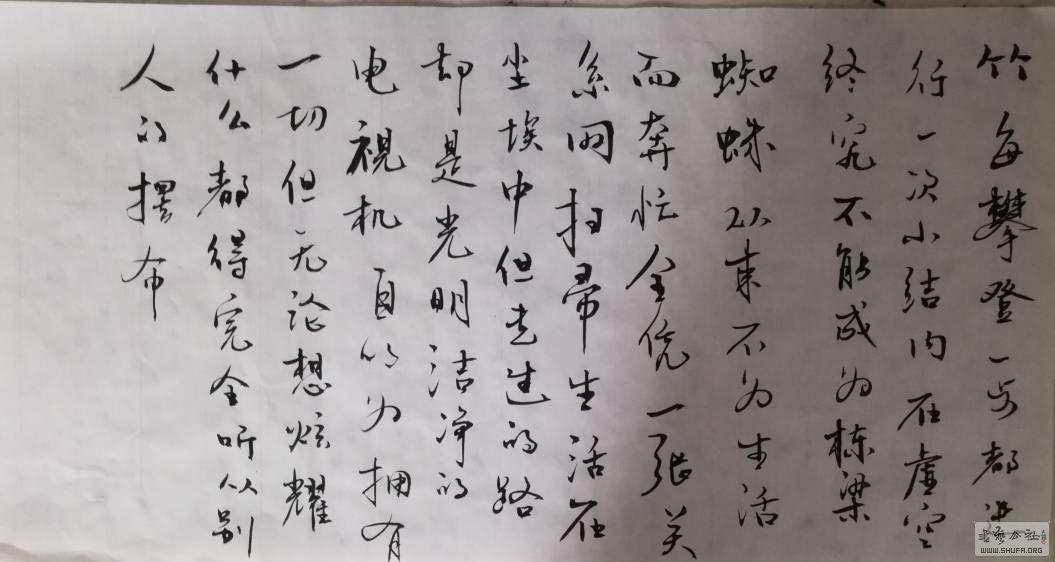 竹每攀登一步都进
行一次小结内在虚空
终究不能成为栋梁
蜘蛛从来不为生活
而奔忙全凭一张关
系网扫帚生活在
尘埃中但走过的路
却是光明洁净的
电視机自以为拥有
一切但无论想炫耀
什么都得完全听从别
人的摆布
WWW.SHUFA.ORG